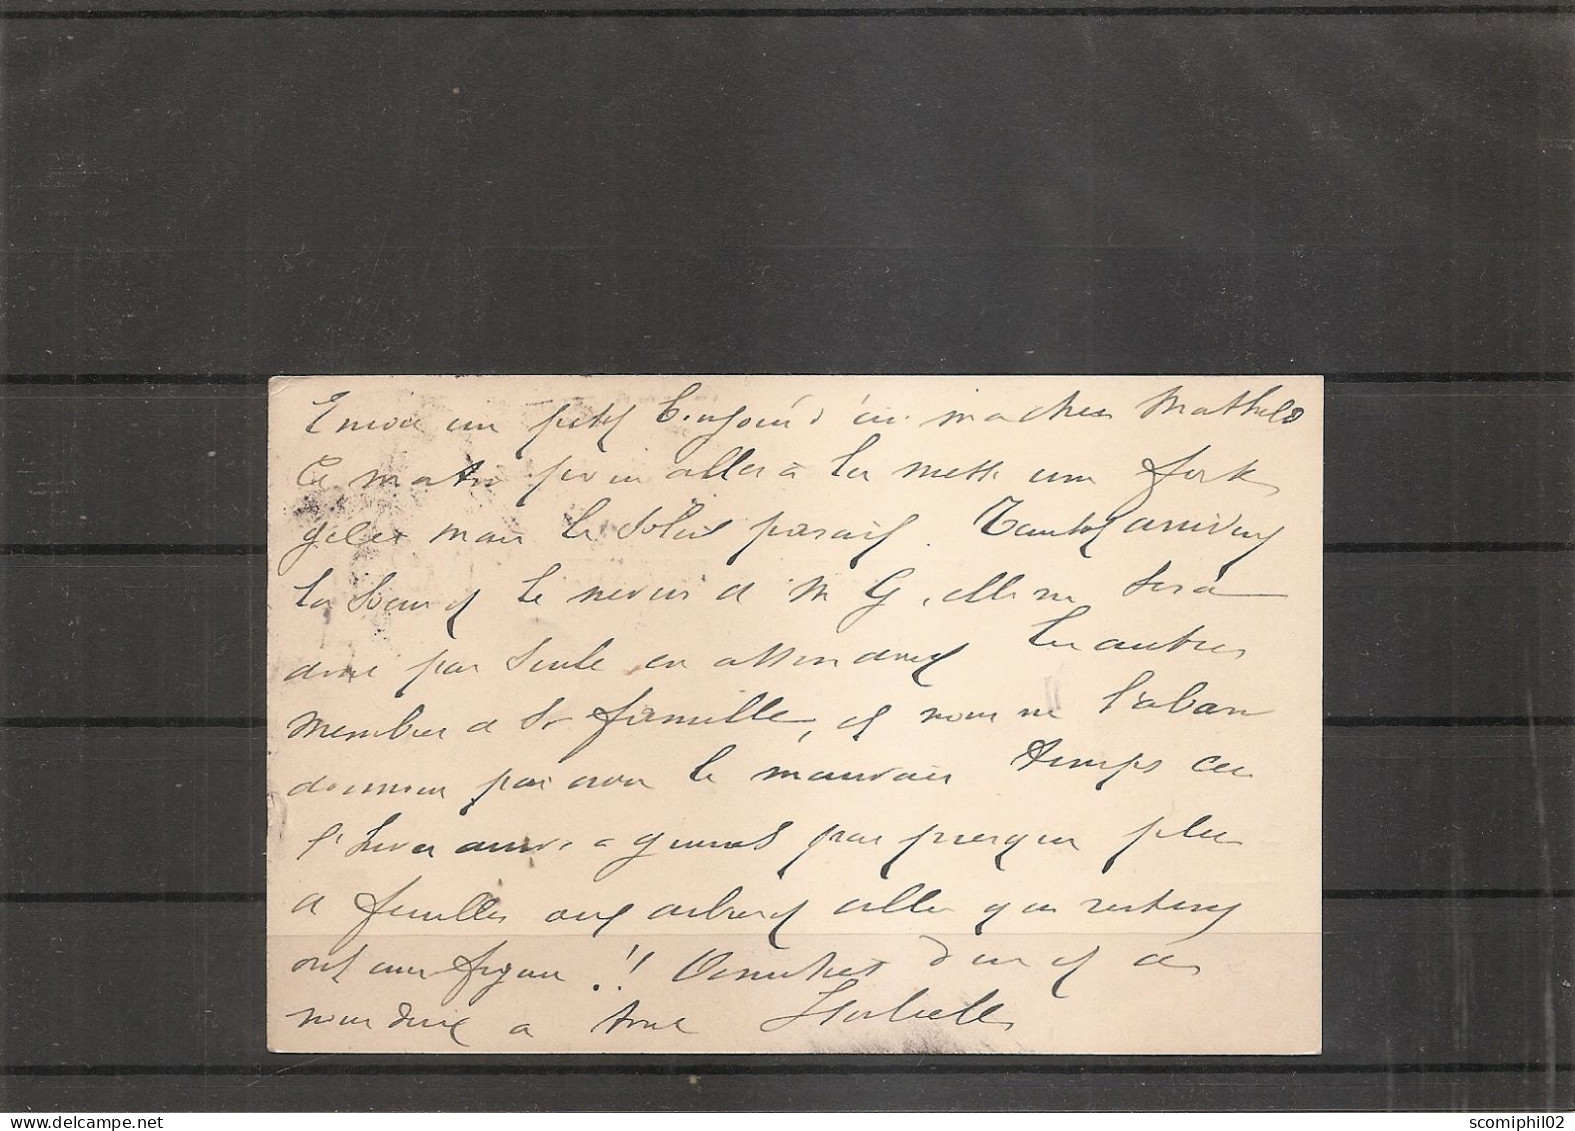 Encore un petit bonjour d'ici ma chère Mathilde
Ce matin pour aller à la messe une forte
gelée mais le Soleil paraît. Tantôt arrivent
la Soeur et le neveu de M G, elle ne sera
donc pas seule en attendant les autres
membres de sa famille, et nous ne l'aban
donnons pas avec le mauvais temps car
l'hiver arrive à grands pas presque plus
de feuilles aux arbres et celles qui restent
ont une figure !! d'un et de
nous deux à tous Isabelle
www.delcampe.net
scomiphil02